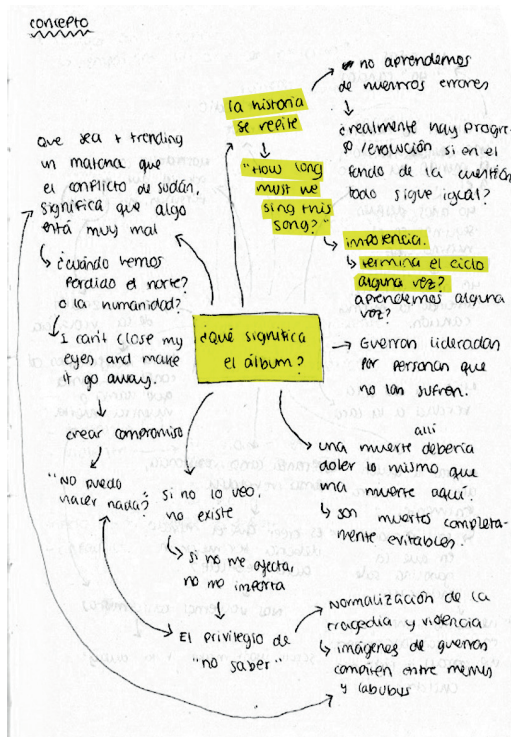 concepto
la historia
se repite
"How long
must we
sing this
song?"
no aprendemos
de nuestros errores
¿realmente hay progre-
so /evolución si en el
fondo de la cuestión
todo sigue igual?
impotencia.
termina el ciclo
alguna vez?
aprendemos alguna
vez?
Que sea + trending
un matcha que
el conflicto de sudán,
significa que algo
está muy mal
¿cuándo hemos
perdido el norte?
o la humanidad?
I can't close my
eyes and make
it go away.
crear compromiso
"No puedo
hacer nada?"
¿Qué significa
el álbum?
Guerras lideradas
por personas que
no las sufren.
allí
una muerte debería
doler lo mismo que
una muerte aquí.
son muertes completa-
mente evitables.
si no lo veo,
no existe
si no me afecta,
no me importa
El privilegio de
"no saber"
Normalización de la
tragedia y violencia
imágenes de guerras
compiten entre memes
y labubus